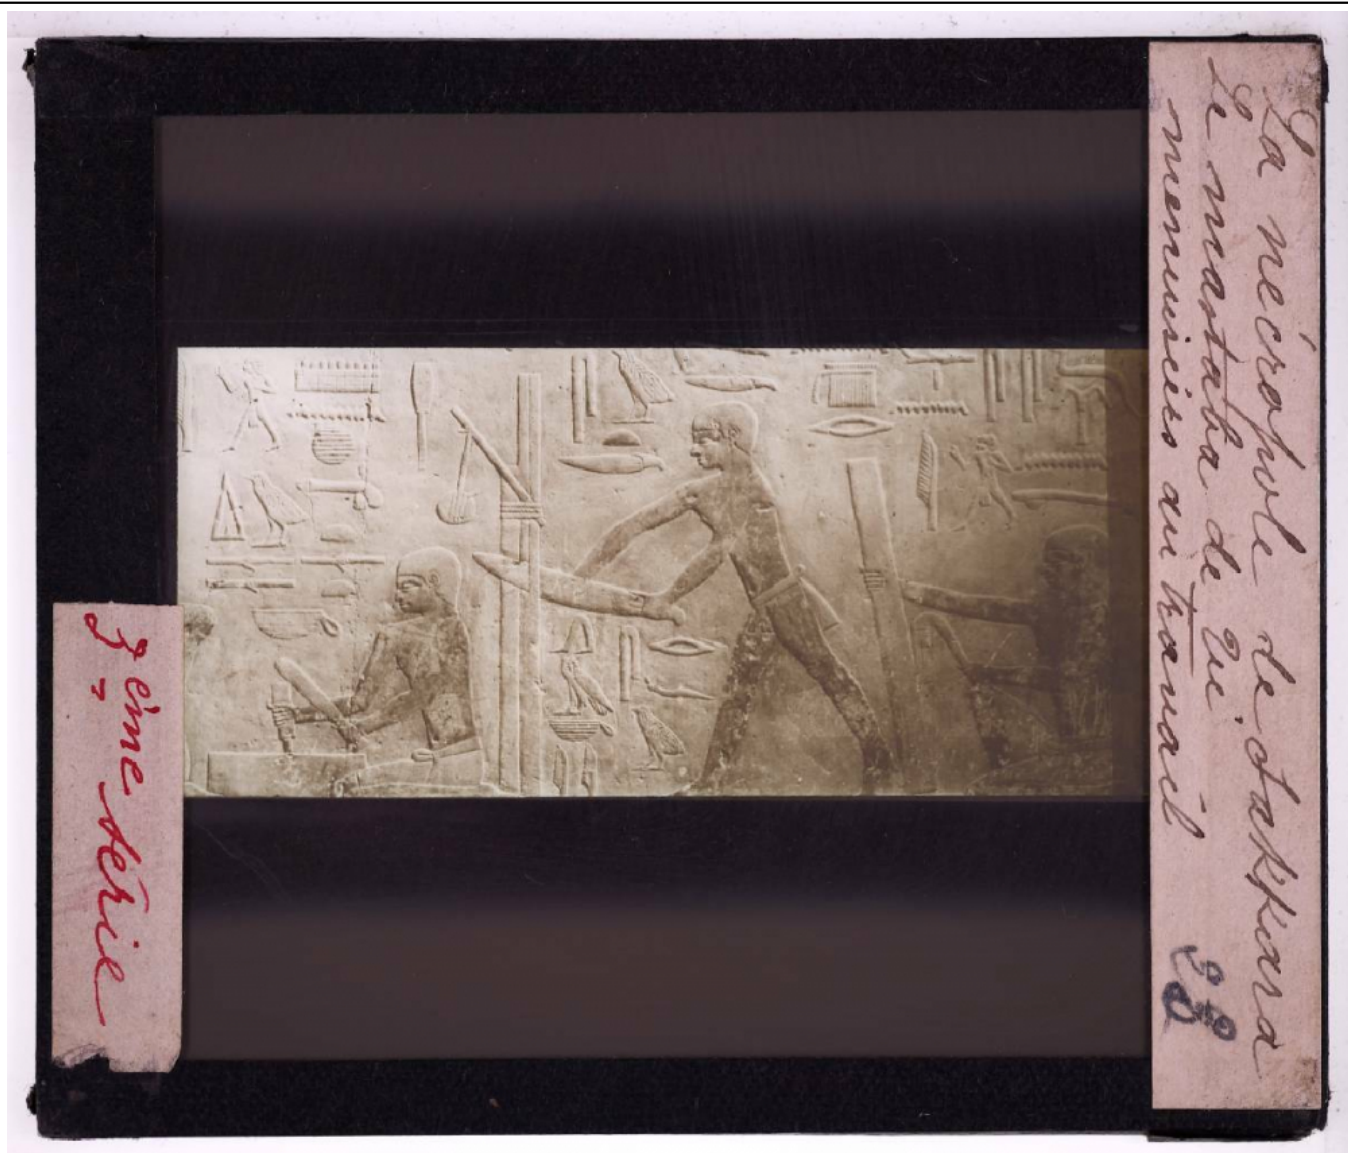 La nécropole de Sakkara
Le mastaba de Ti
menuisiers au travail
28
3ème série